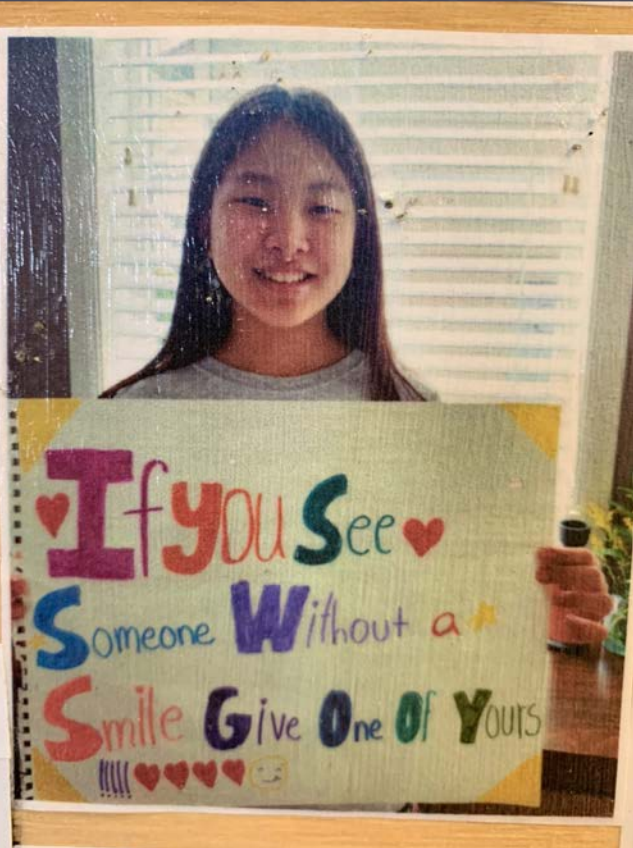 If you See
Someone Without a
Smile Give One Of Yours
!!!!!